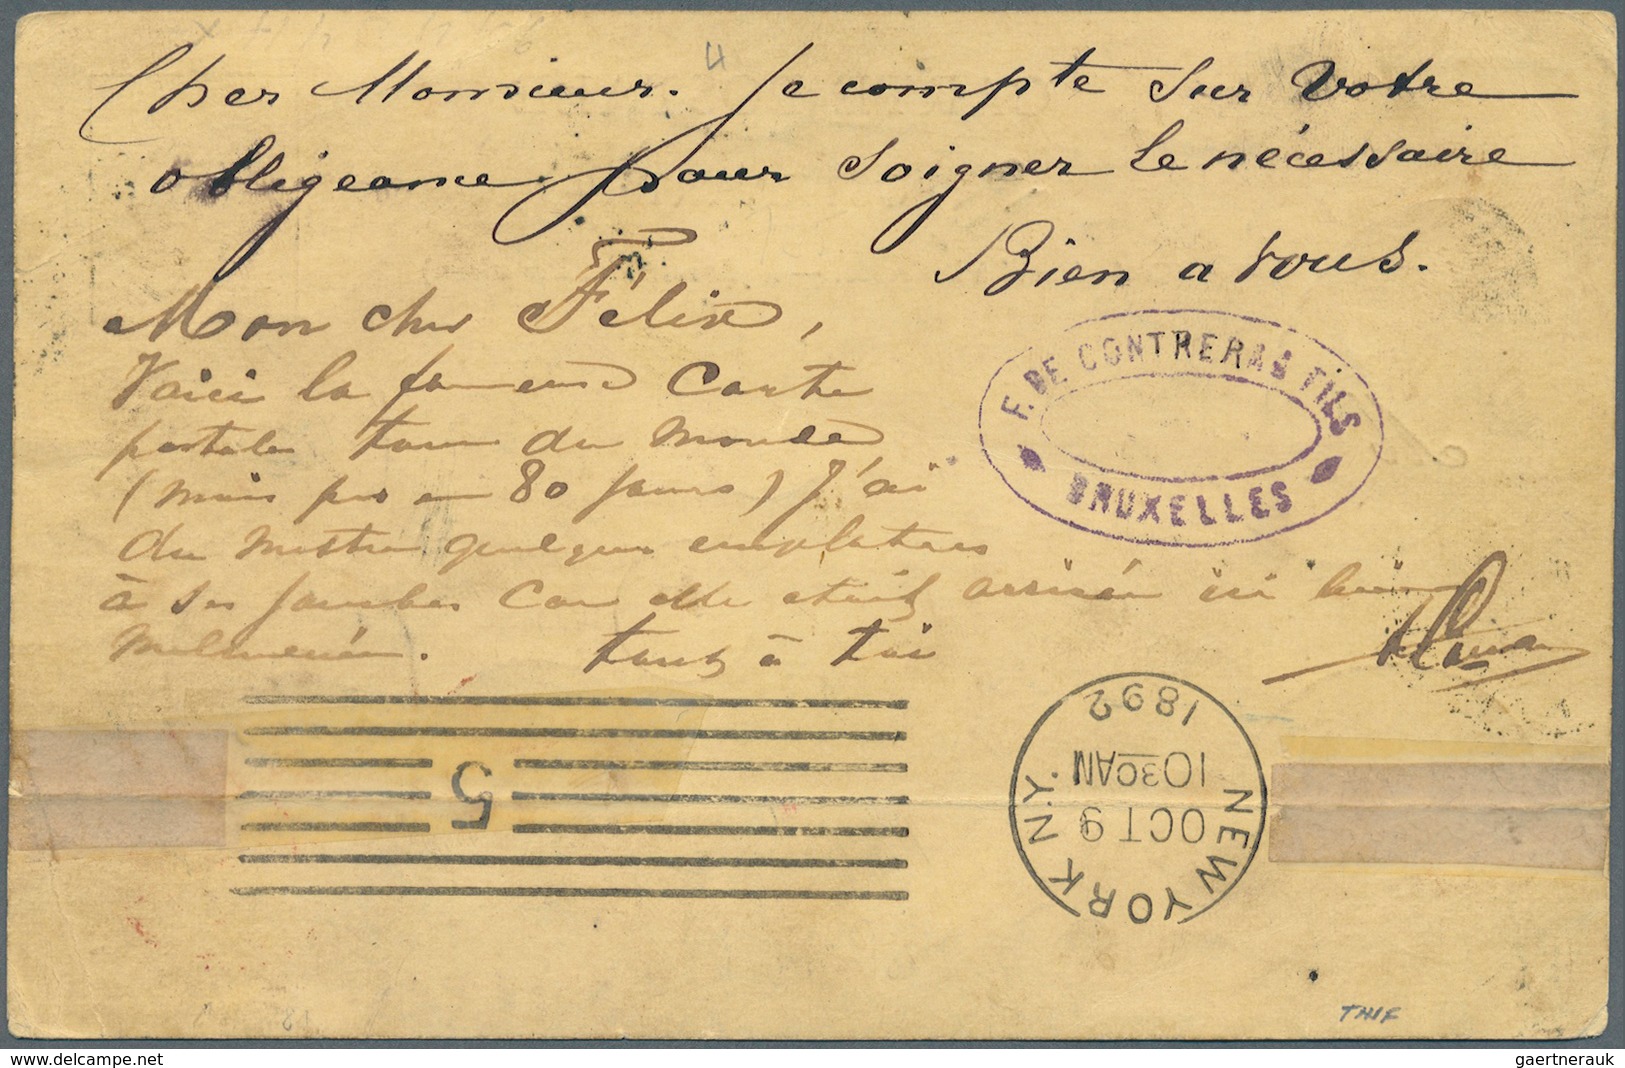 Cher Monsieur. Je compte sur votre
obligeance pour soigner le nécessaire
Bien a vous.
Mon cher Félix,
Voici la fameuse Carte
postale tour du Monde
(mais pas en 80 jours) J'ai
du mettre quelques emplatres
à ses jambes Car elle etait arrivée ici bien
tout à toi
F. DE CONTRERAS FILS
BRUXELLES
5
NEW YORK N.Y.
OCT 9
1030AM
1892
THIF
delcampe.net
gaertnerauk